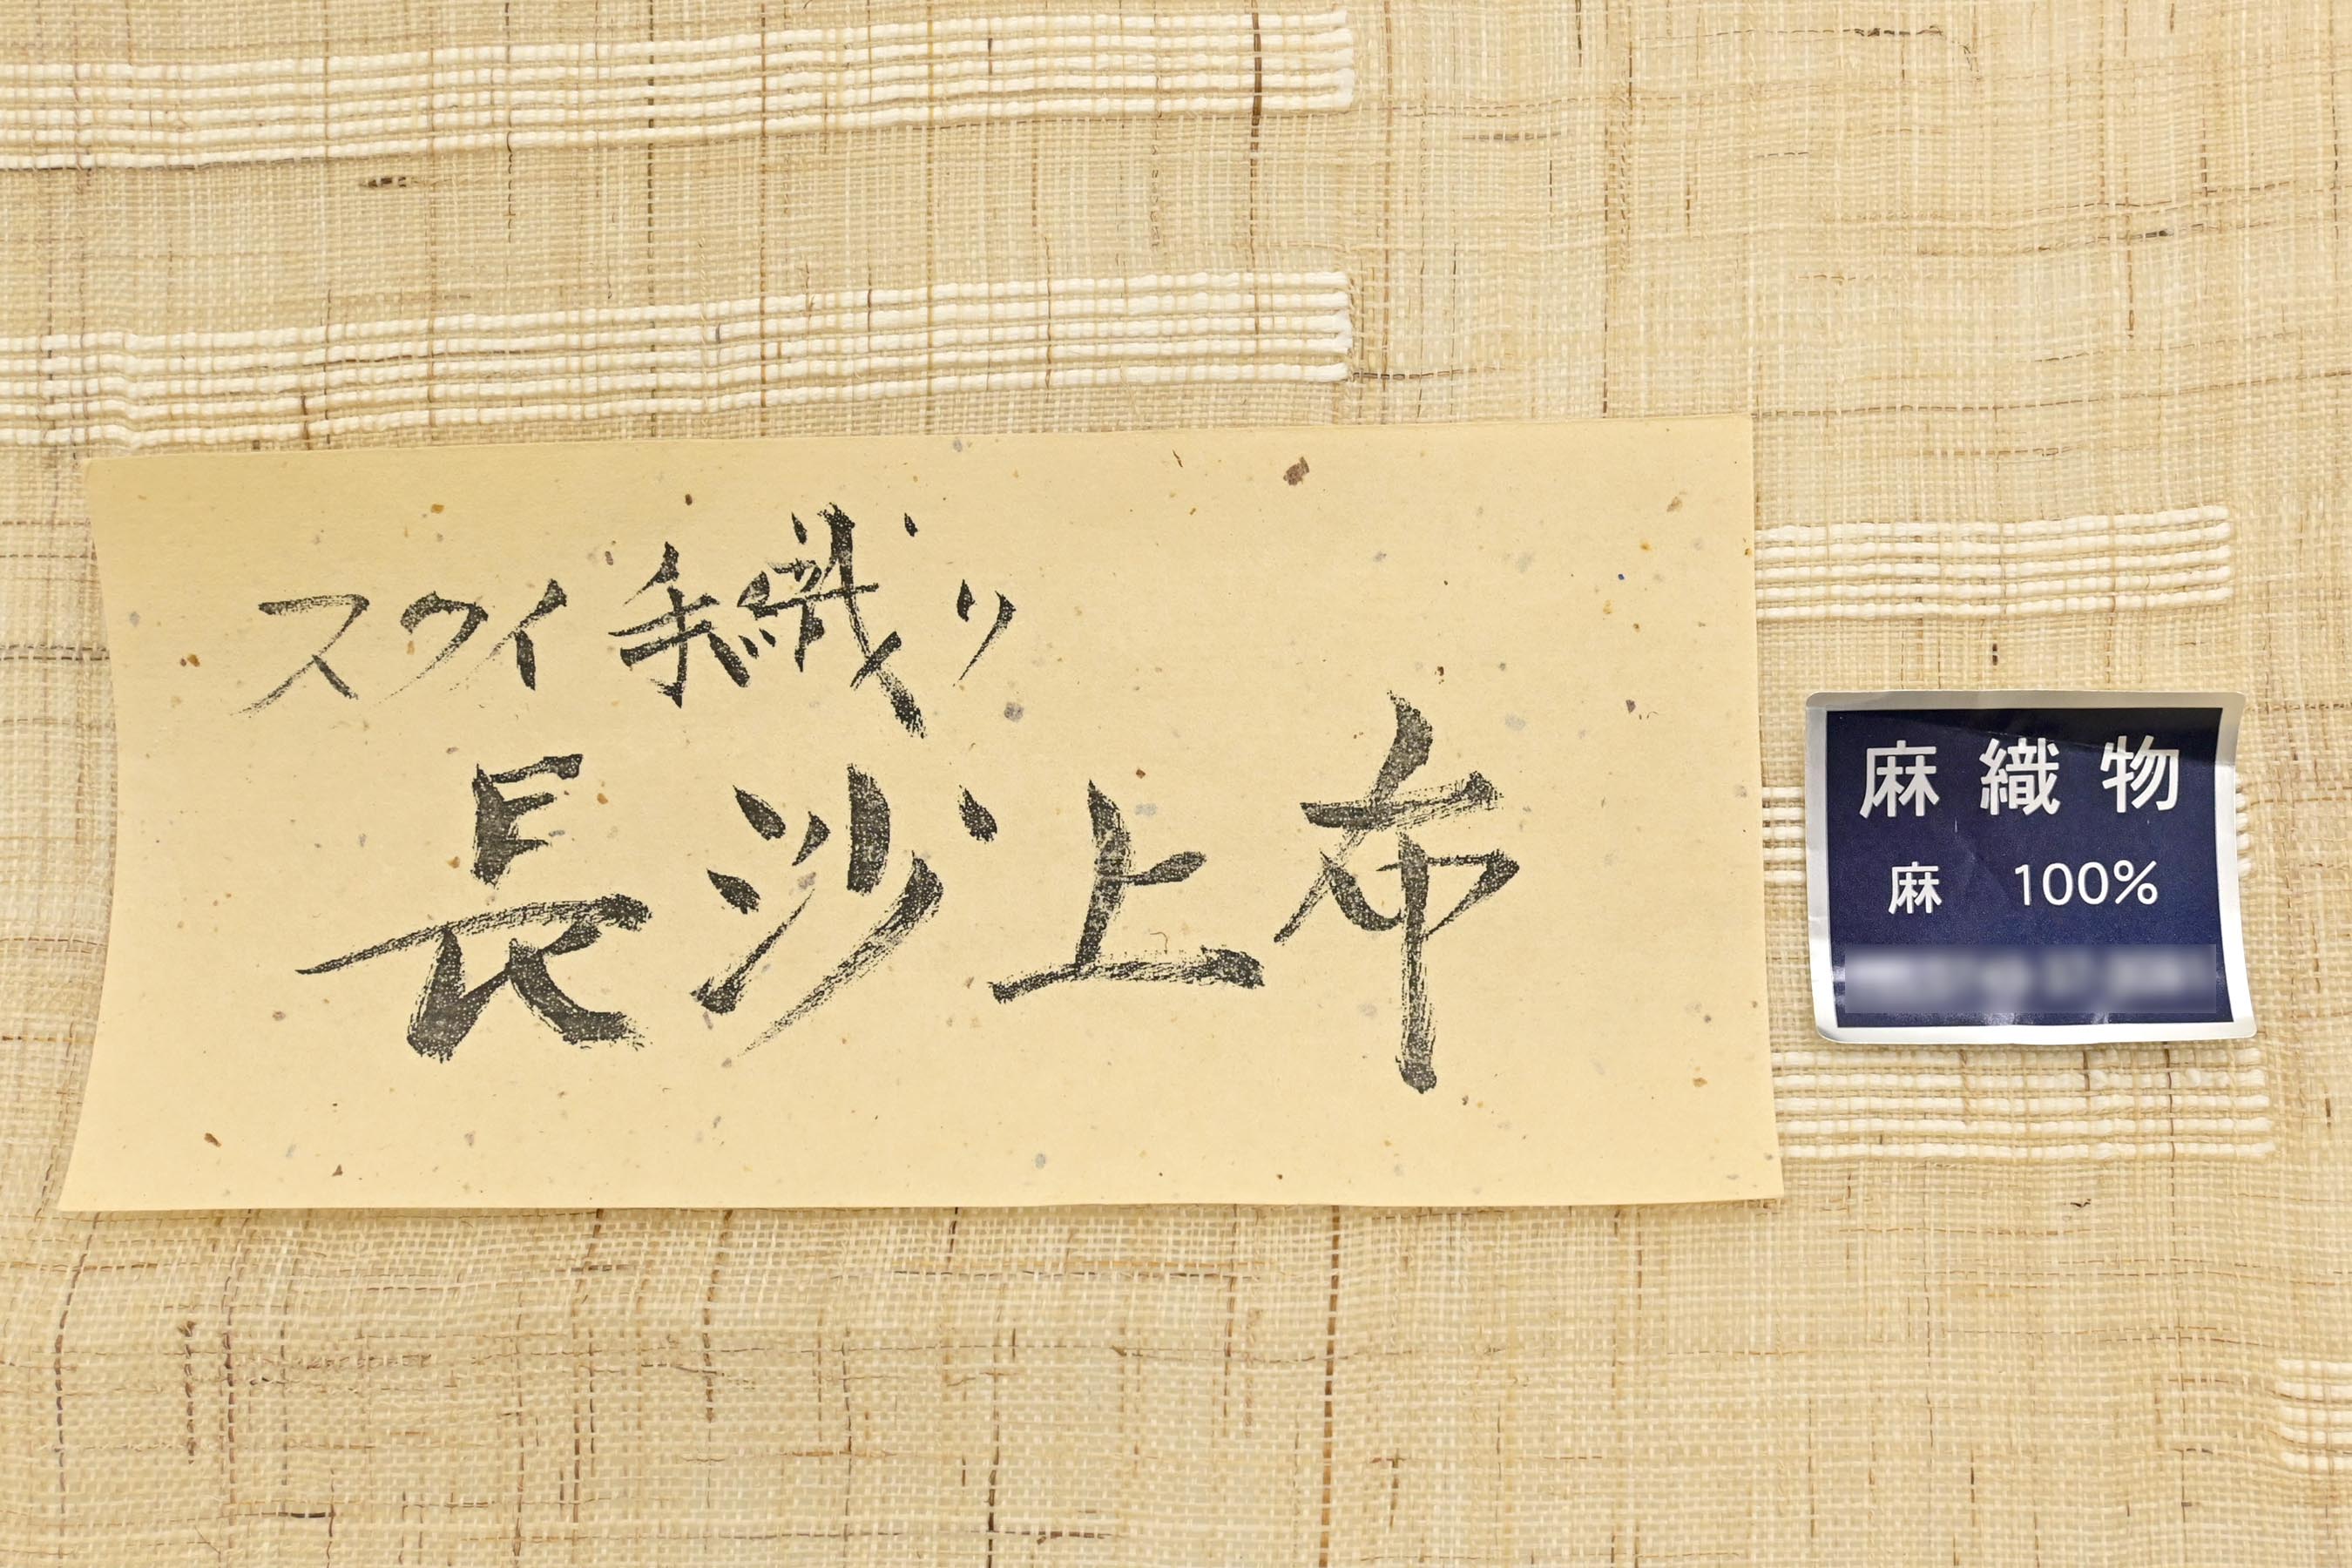 スクイ手織リ
長沙上布
麻織物
麻 100%